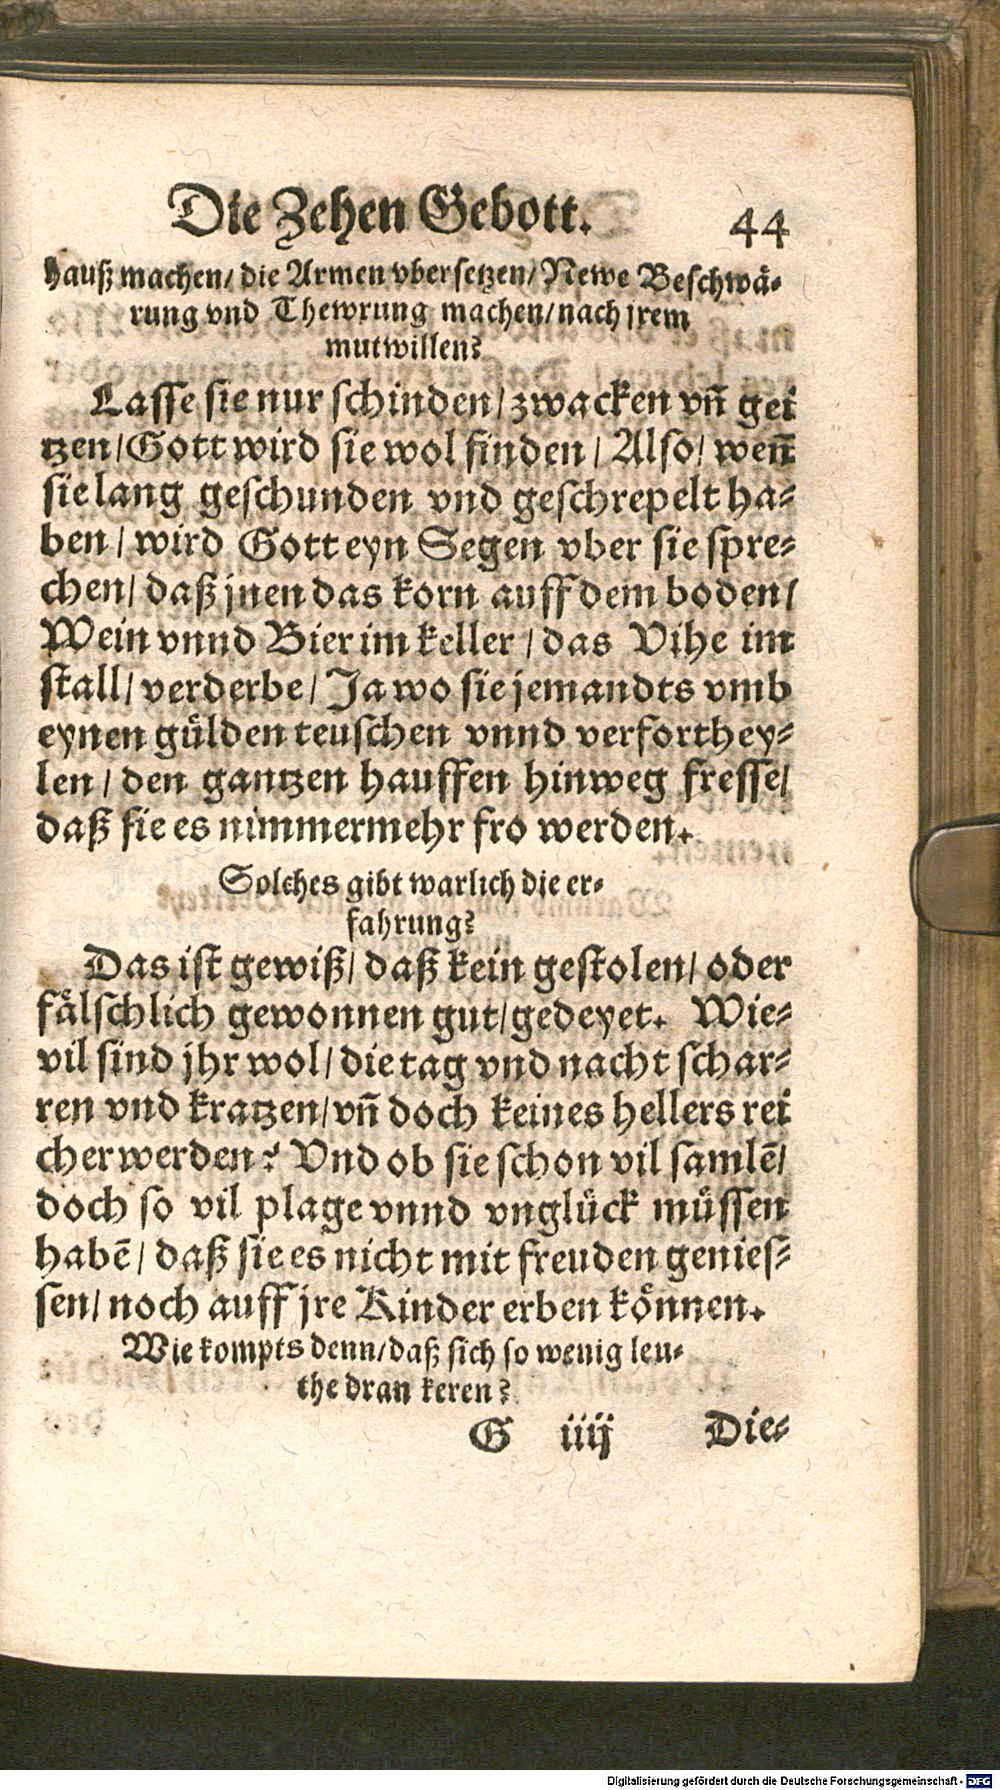 Die Zehen Gebott. 44
hauß machen/ die Armen vbersetzen/ Newe Beschwä-
rung vnd Thewrung machen/ nach jrem
mutwillen?
Lasse sie nur schinden/ zwacken vñ gei
tzen/ Gott wird sie wol finden/ Also/ weñ
sie lang geschunden vnd geschrepelt ha-
ben/ wird Gott eyn Segen vber sie spre-
chen/ daß jnen das korn auff dem boden/
Wein vnnd Bier im keller/ das Vihe im
stall/ verderbe/ Ja wo sie jemandts vmb
eynen gülden teuschen vnnd verforthey-
len/ den gantzen hauffen hinweg fresse/
daß sie es nimmermehr fro werden.
Solches gibt warlich die er-
fahrung?
Das ist gewiß/ daß kein gestolen/ oder
fälschlich gewonnen gut/ gedeyet. Wie-
vil sind jhr wol/ die tag vnd nacht schar-
ren vnd kratzen/ vñ doch keines hellers rei
cher werden? Vnd ob sie schon vil samlẽ/
doch so vil plage vnnd vnglück müssen
habẽ/ daß sie es nicht mit freuden genies-
sen/ noch auff jre Kinder erben können.
Wie kompts denn/ daß sich so wenig leu-
the dran keren?
G iiij Die-
Digitalisierung gefördert durch die Deutsche Forschungsgemeinschaft - DFG